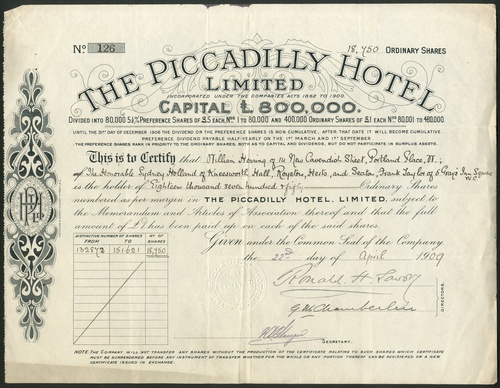 No 126
18,750 ORDINARY SHARES
THE PICCADILLY HOTEL
LIMITED
INCORPORATED UNDER THE COMPANIES ACTS 1862 TO 1900.
CAPITAL £800,000.
DIVIDED INTO 80,000 5½% PREFERENCE SHARES OF £5 EACH, Nos 1 TO 80,000 AND 400,000 ORDINARY SHARES OF £1 EACH Nos 80,001 TO 480,000.
UNTIL THE 31ST DAY OF DECEMBER 1906 THE DIVIDEND ON THE PREFERENCE SHARES IS NON CUMULATIVE, AFTER THAT DATE IT WILL BECOME CUMULATIVE
PREFERENCE DIVIDEND PAYABLE HALF-YEARLY ON THE 1ST MARCH AND 1ST SEPTEMBER
THE PREFERENCE SHARES RANK IN PRIORITY TO THE ORDINARY SHARES, BOTH AS TO CAPITAL AND DIVIDENDS, BUT DO NOT PARTICIPATE IN SURPLUS ASSETS
This is to Certify that William Herring of 14 New Cavendish Street, Portland Place, W.;
of The Honorable Sydney Holland of Kneesworth Hall, Royston, Herts, and Seaton Frank Taylor of 5 Grays Inn Square W.C.
is the holder of Eighteen thousand seven hundred & fifty Ordinary Shares
numbered as per margin in THE PICCADILLY HOTEL, LIMITED, subject to
the Memorandum and Articles of Association thereof and that the full
amount of £1 has been paid up on each of the said shares.
DISTINCTIVE NUMBER OF SHARES
FROM TO
No OF SHARES
132872 151621 18,750
Given under the Common Seal of the Company
the 22nd day of April 1909
Ronald H. Savory
G. W. Chamberlin
DIRECTORS.
SECRETARY.
NOTE. THE COMPANY WILL NOT TRANSFER ANY SHARES WITHOUT THE PRODUCTION OF THE CERTIFICATE RELATING TO SUCH SHARES WHICH CERTIFICATE
MUST BE SURRENDERED BEFORE ANY INSTRUMENT OF TRANSFER WHETHER FOR THE WHOLE OR ANY PORTION THEREOF CAN BE REGISTERED OR A NEW
CERTIFICATE ISSUED IN EXCHANGE.